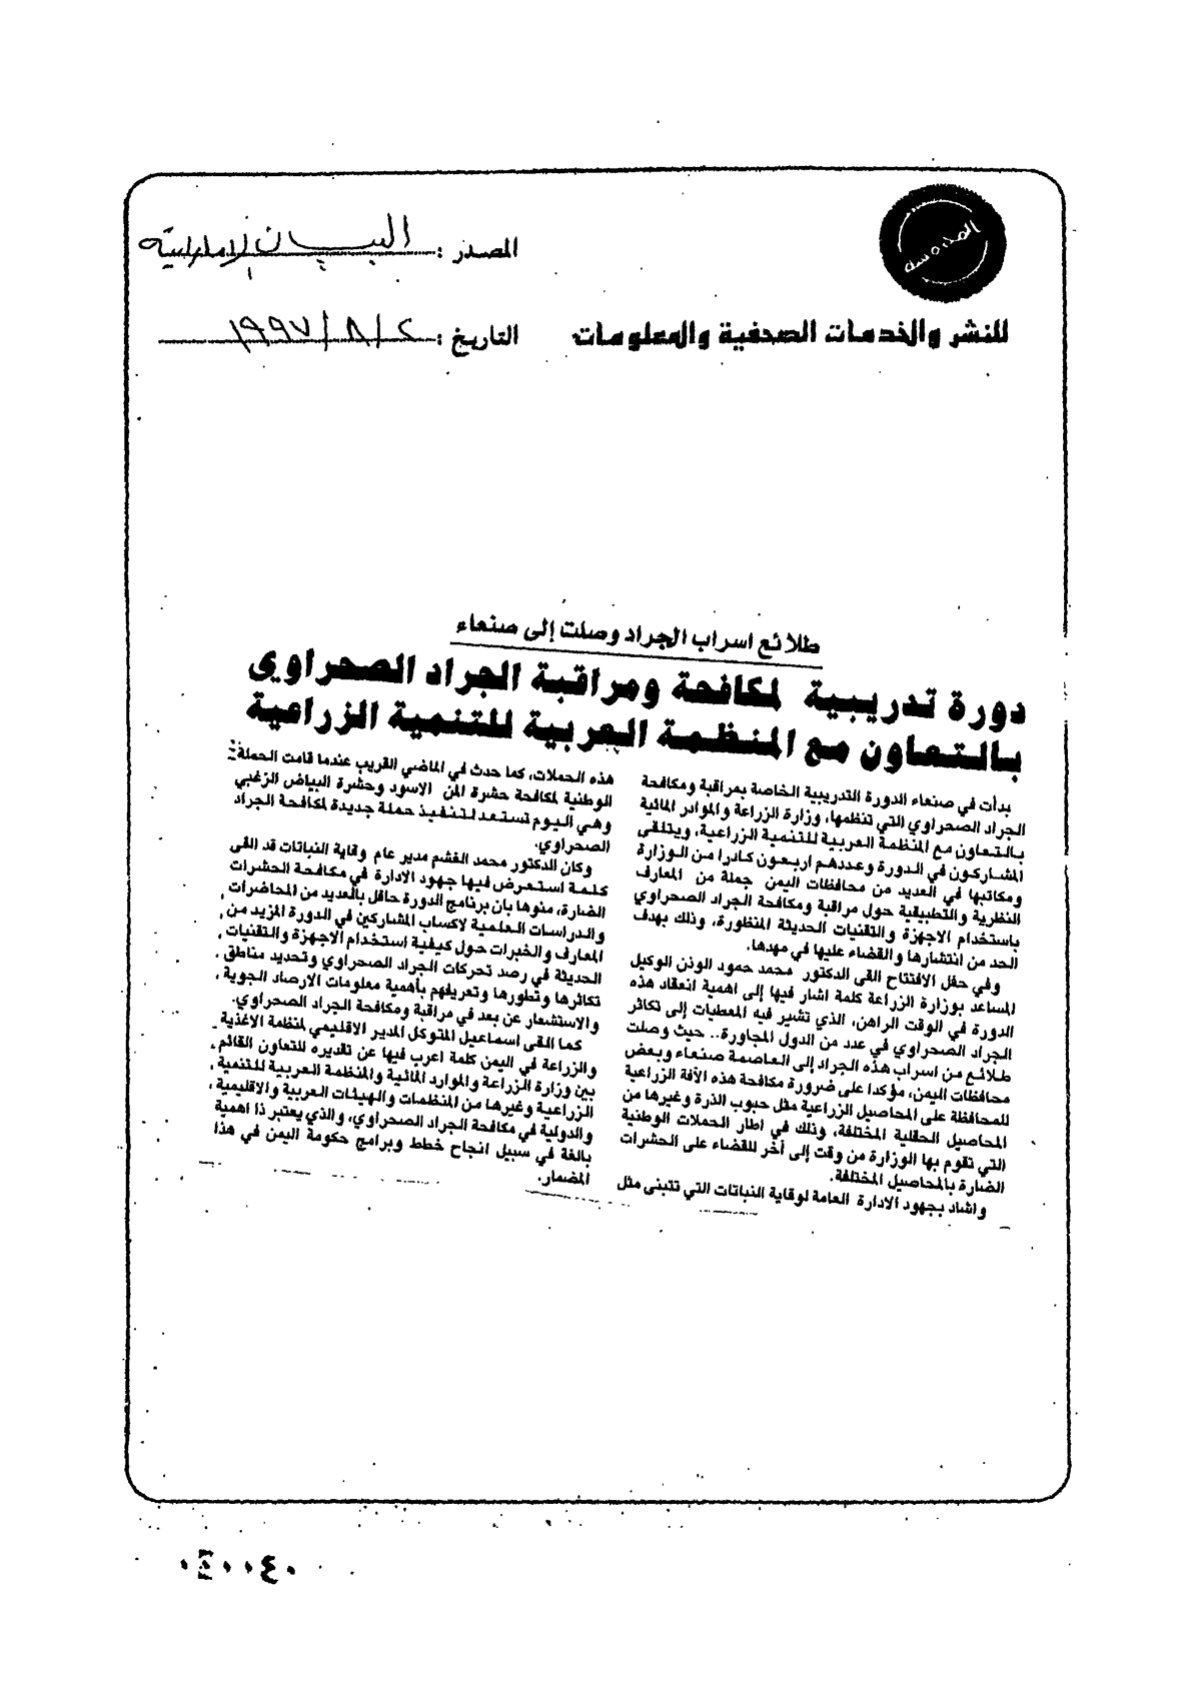 المصدر : البيان الإماراتية
للنشر والخدمات الصحفية والمعلومات
التاريخ : ٢ / ٨ / ١٩٩٧
طلائع اسراب الجراد وصلت إلى صنعاء
دورة تدريبية لمكافحة ومراقبة الجراد الصحراوى
بالتعاون مع المنظمة العربية للتنمية الزراعية
بدأت في صنعاء الدورة التدريبية الخاصة بمراقبة ومكافحة
الجراد الصحراوي التي تنظمها، وزارة الزراعة والموادر المائية
بالتعاون مع المنظمة العربية للتنمية الزراعية، ويتلقى
المشاركون في الدورة وعددهم اربعون كادرا من الوزارة
ومكاتبها في العديد من محافظات اليمن جملة من المعارف
النظرية والتطبيقية حول مراقبة ومكافحة الجراد الصحراوي
باستخدام الاجهزة والتقنيات الحديثة المنظورة، وذلك بهدف
الحد من انتشارها والقضاء عليها في مهدها.
وفي حفل الافتتاح القى الدكتور محمد حمود الوذن الوكيل
المساعد بوزارة الزراعة كلمة اشار فيها إلى اهمية انعقاد هذه
الدورة في الوقت الراهن، الذي تشير فيه المعطيات إلى تكاثر
الجراد الصحراوي في عدد من الدول المجاورة.. حيث وصلت
طلائع من اسراب هذه الجراد إلى العاصمة صنعاء وبعض
محافظات اليمن، مؤكدا على ضرورة مكافحة هذه الآفة الزراعية
للمحافظة على المحاصيل الزراعية مثل حبوب الذرة وغيرها من
المحاصيل الحقلية المختلفة، وذلك في اطار الحملات الوطنية
التي تقوم بها الوزارة من وقت إلى أخر للقضاء على الحشرات
الضارة بالمحاصيل المختلفة.
واشاد بجهود الادارة العامة لوقاية النباتات التي تتبنى مثل
هذه الحملات، كما حدث في الماضي القريب عندما قامت الحملة
الوطنية لمكافحة حشرة المن الاسود وحشرة البياض الزغبي
وهي اليوم تستعد لتنفيذ حملة جديدة لمكافحة الجراد
الصحراوي.
وكان الدكتور محمد الغشم مدير عام وقاية النباتات قد القى
كلمة استعرض فيها جهود الادارة في مكافحة الحشرات
الضارة، منوها بان برنامج الدورة حافل بالعديد من المحاضرات
والدراسات العلمية لاكساب المشاركين في الدورة المزيد من
المعارف والخبرات حول كيفية استخدام الاجهزة والتقنيات
الحديثة في رصد تحركات الجراد الصحراوي وتحديد مناطق
تكاثرها وتطورها وتعريفهم بأهمية معلومات الارصاد الجوية
والاستشعار عن بعد في مراقبة ومكافحة الجراد الصحراوي.
كما القى اسماعيل المتوكل المدير الاقليمي لمنظمة الاغذية
والزراعة في اليمن كلمة اعرب فيها عن تقديره للتعاون القائم
بين وزارة الزراعة والموارد المائية والمنظمة العربية للتنمية
الزراعية وغيرها من المنظمات والهيئات العربية والاقليمية
والدولية في مكافحة الجراد الصحراوي، والذي يعتبر ذا اهمية
بالغة في سبيل انجاح خطط وبرامج حكومة اليمن في هذا
المضمار.